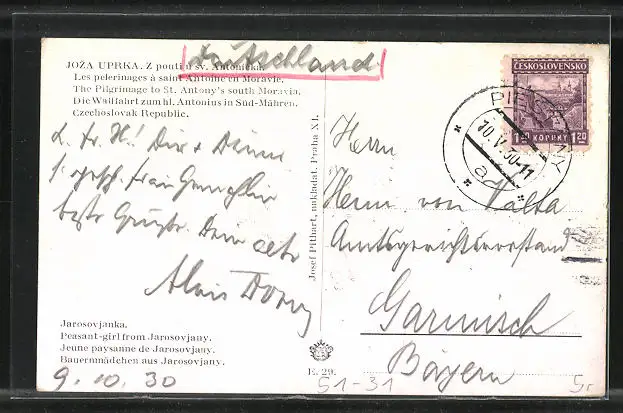 Deutschland
JOŽA UPRKA. Z pouti u sv. Antonička.
Les pelerinages à saint Antoine en Moravie.
The Pilgrimage to St. Antony's south Moravia.
Die Wallfahrt zum hl. Antonius in Süd-Mähren.
Czechoslovak Republic.
L. Fr. H! Dir + Deiner
beste Grüße. Dein alter
Alois
Jarosovjanka.
Peasant-girl from Jarosovjany.
Jeune paysanne de Jarosovjany.
Bauernmädchen aus Jarosovjany.
9. 10. 30
Josef Pithart, nakladat. Praha XI.
E. 29.
51-31
ČESKOSLOVENSKO
1.20 KORUNY 1.20
10.V.30-11
a
Herrn
Herrn von Valta
Amtsgerichtsvorstand
Garmisch
Bayern